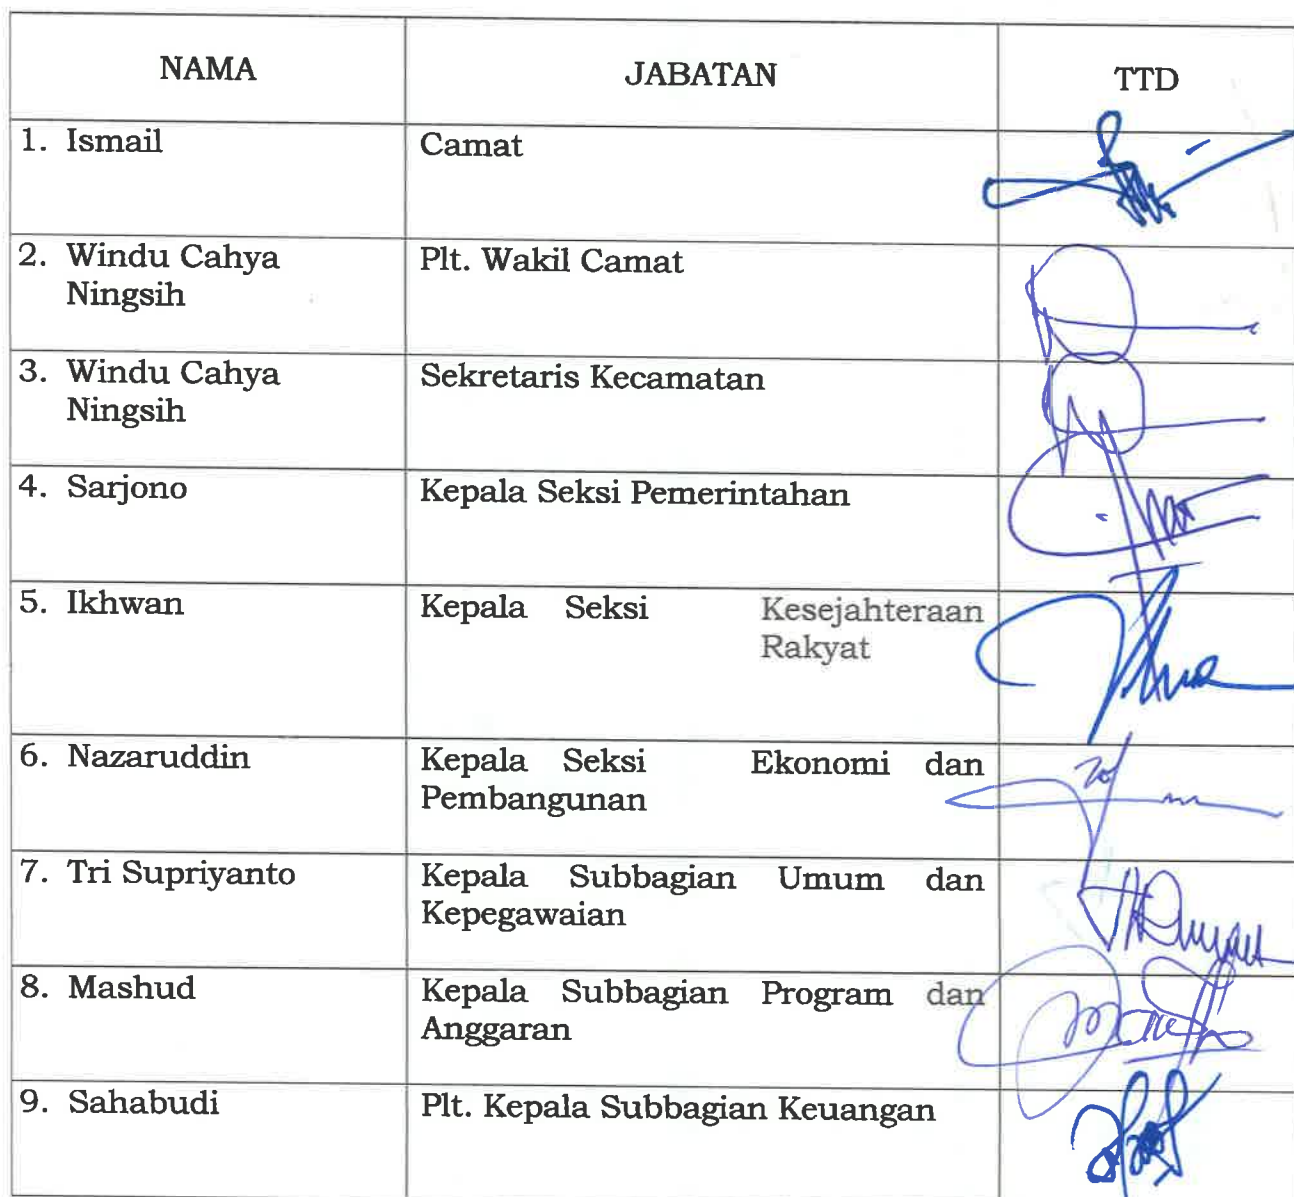 NAMA JABATAN TTD
1. Ismail Camat
2. Windu Cahya Plt. Wakil Camat
Ningsih
3. Windu Cahya Sekretaris Kecamatan
Ningsih
4. Sarjono Kepala Seksi Pemerintahan
5. Ikhwan Kepala Seksi Kesejahteraan
Rakyat
6. Nazaruddin Kepala Seksi Ekonomi dan
Pembangunan
7. Tri Supriyanto Kepala Subbagian Umum dan
Kepegawaian
8. Mashud Kepala Subbagian Program dan
Anggaran
9. Sahabudi Plt. Kepala Subbagian Keuangan